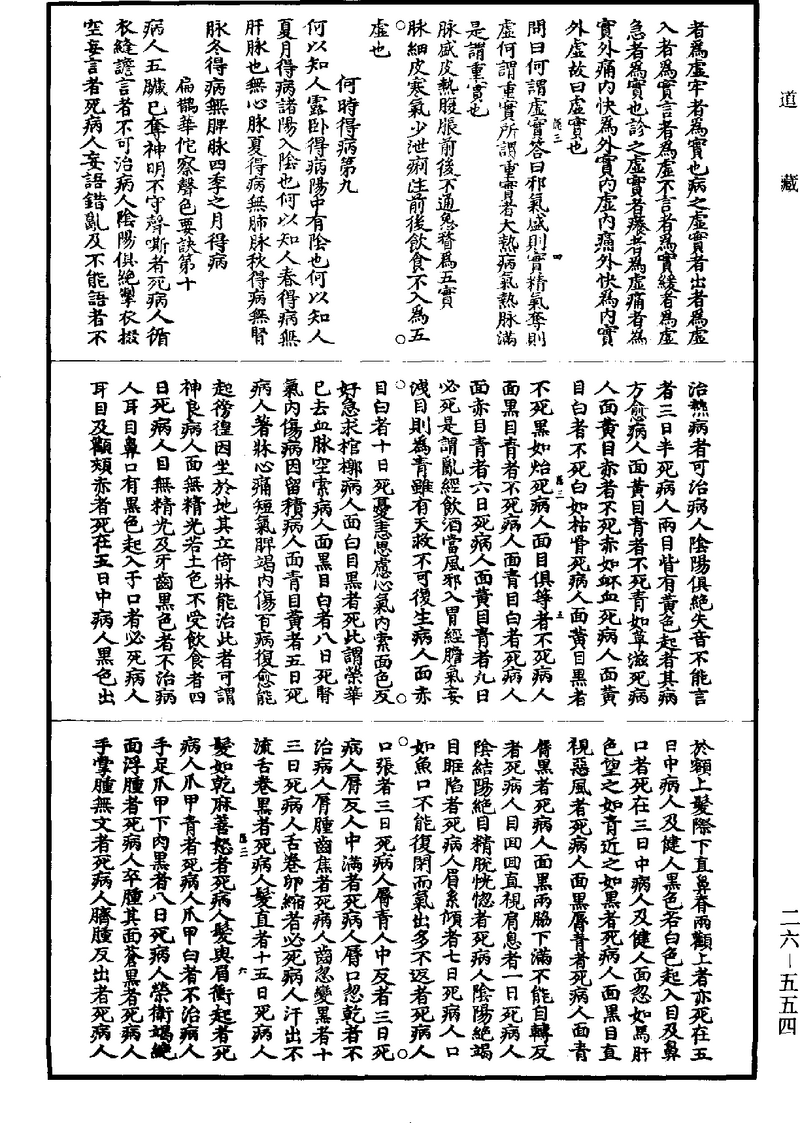 道藏
者為虛牢者為實也病之虛實者出者為虛
入者為實言者為虛不言者為實緩者為虛
急者為實也診之虛實者癢者為虛痛者為
實外痛內快為外實內虛內痛外快為內實
外虛故曰虛實也
問曰何謂虛實答曰邪氣盛則實精氣奪則
虛何謂重實所謂重實者大熱病氣熱脉滿
是謂重實也
脉盛皮熱腹脹前後不通悗瞀為五實
脉細皮寒氣少泄痢注前後飲食不入為五
虛也
何時得病第九
何以知人露臥得病陽中有陰也何以知人
夏月得病諸陽入陰也何以知人春得病無
肝脉也無心脉夏得病無肺脉秋得病無腎
脉冬得病無脾脉四季之月得病
扁鵲華佗察聲色要訣第十
病人五臟已奪神明不守聲嘶者死病人循
衣縫譫言者不可治病人陰陽俱絕掣衣掇
空妄言者死病人妄語錯亂及不能語者不
治熱病者可治病人陰陽俱絕失音不能言
者三日半死病人兩目眥有黃色起者其病
方愈病人面黃目青者不死青如草滋死病
人面黃目赤者不死赤如衃血死病人面黃
目白者不死白如枯骨死病人面黃目黑者
不死黑如炲死病人面目俱等者不死病人
面黑目青者不死病人面青目白者死病人
面赤目青者六日死病人面黃目青者九日
必死是謂亂經飲酒當風邪入胃經膽氣妄
洩目則為青雖有天救不可復生病人面赤
目白者十日死憂恚思慮心氣內索面色反
好急求棺槨病人面白目黑者死此謂榮華
已去血脉空索病人面黑目白者八日死腎
氣內傷病因留積病人面青目黃者五日死
病人著牀心痛短氣脾竭內傷百病復愈能
起徬徨因坐於地其立倚牀能治此者可謂
神良病人面無精光若土色不受飲食者四
日死病人目無精光及牙齒黑色者不治病
人耳目鼻口有黑色起入于口者必死病人
耳目及顴頰赤者死在五日中病人黑色出
於額上髮際下直鼻脊兩顴上者亦死在五
日中病人及健人黑色若白色起入目及鼻
口者死在三日中病人及健人面忽如馬肝
色望之如青近之如黑者死病人面黑目直
視惡風者死病人面黑脣青者死病人面青
脣黑者死病人面黑兩脇下滿不能自轉反
者死病人目回回直視肩息者一日死病人
陰結陽絕目精脫恍惚者死病人陰陽絕竭
目眶陷者死病人眉系傾者七日死病人口
如魚口不能復閉而氣出多不返者死病人
口張者三日死病人脣青人中反者三日死
病人脣反人中滿者死病人脣口忽乾者不
治病人脣腫齒焦者死病人齒忽變黑者十
三日死病人舌卷卵縮者必死病人汗出不
流舌卷黑者死病人髮直者十五日死病人
髮如乾麻善怒者死病人髮與眉衝起者死
病人爪甲青者死病人爪甲白者不治病人
手足爪甲下肉黑者八日死病人榮衛竭絕
面浮腫者死病人卒腫其面蒼黑者死病人
手掌腫無文者死病人臍腫反出者死病人
二六—五五四